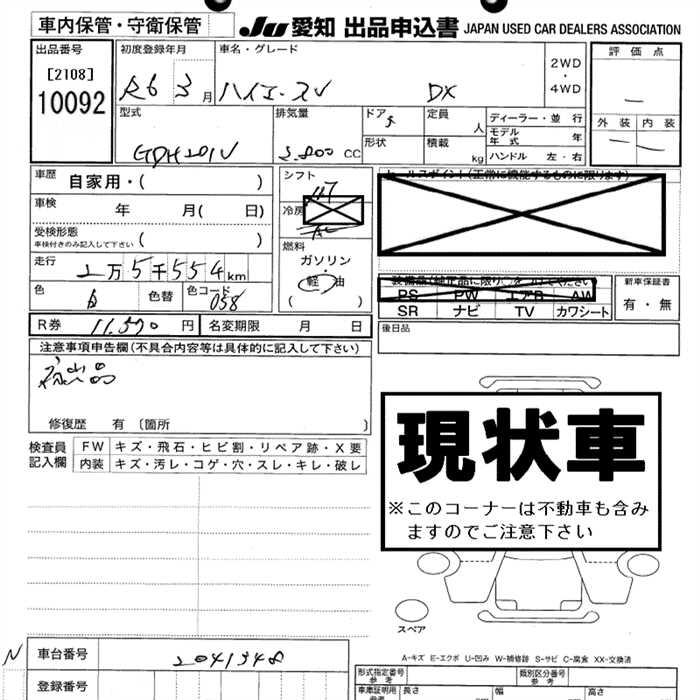 車内保管・守衛保管
JU 愛知 出品申込書 JAPAN USED CAR DEALERS ASSOCIATION
出品番号
[2108]
10092
初度登録年月
R6 3月
車名・グレード
ハイエースV DX
2WD
・
4WD
評価点
外装 内装
型式
GDH201V
排気量
2.800 cc
ドア 5
形状
定員 人
積載 kg
ディーラー・並行
モデル年式 年
ハンドル 左・右
車歴 自家用・( )
車検 年 月( 日)
受検形態
車検付きのみ記入して下さい ( )
走行 2万5千554km
色 白 色替 色コード 058
シフト AT
冷房 AC
燃料
ガソリン
・
軽油
( )
セールスポイント(正常に機能するものに限ります)
装備品(純正品に限り○をつけてください)
PS PW エアB AW
SR ナビ TV カワシート
新車保証書
有・無
後日品
R券 11,570円 名変期限 月 日
注意事項申告欄(不具合内容等は具体的に記入して下さい)
修復歴 有 〔箇所 〕
検査員記入欄
FW キズ・飛石・ヒビ割・リペア跡・X要
内装 キズ・汚レ・コゲ・穴・スレ・キレ・破レ
現状車
※このコーナーは不動車も含み
ますのでご注意下さい
スペア
A-キズ E-エクボ U-凹み W-補修跡 S-サビ C-腐食 XX-交換済
N
車台番号 2041348
登録番号
型式指定番号
参考
類別区分番号
参考
車庫証明用
参考
長さ 幅 高さ